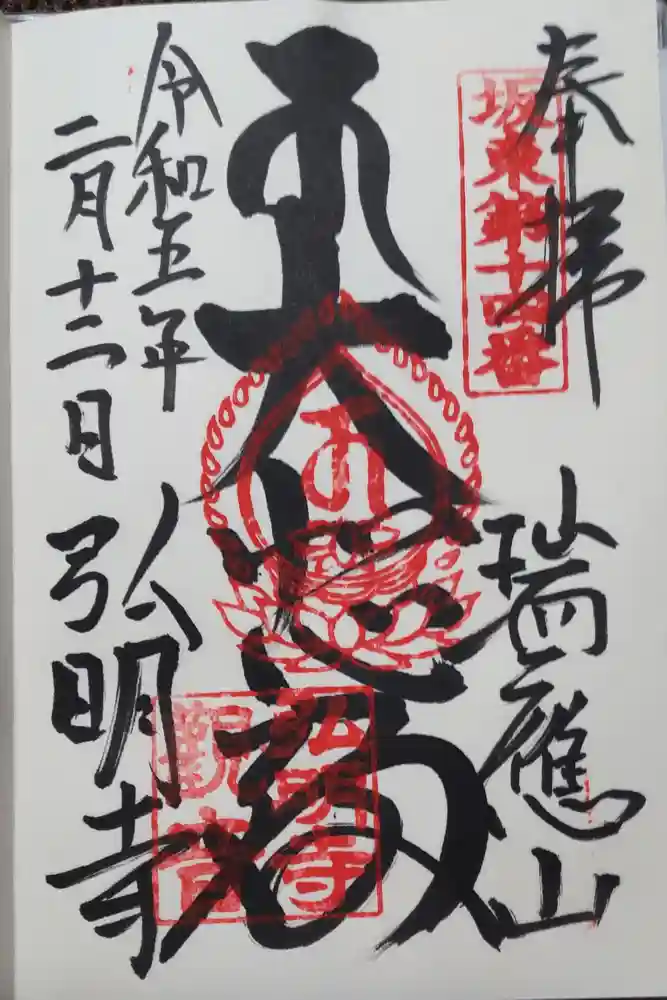 奉拝
坂東第十四番
瑞應山
大悲殿
弘明寺
観音
令和五年
二月十二日
弘明寺